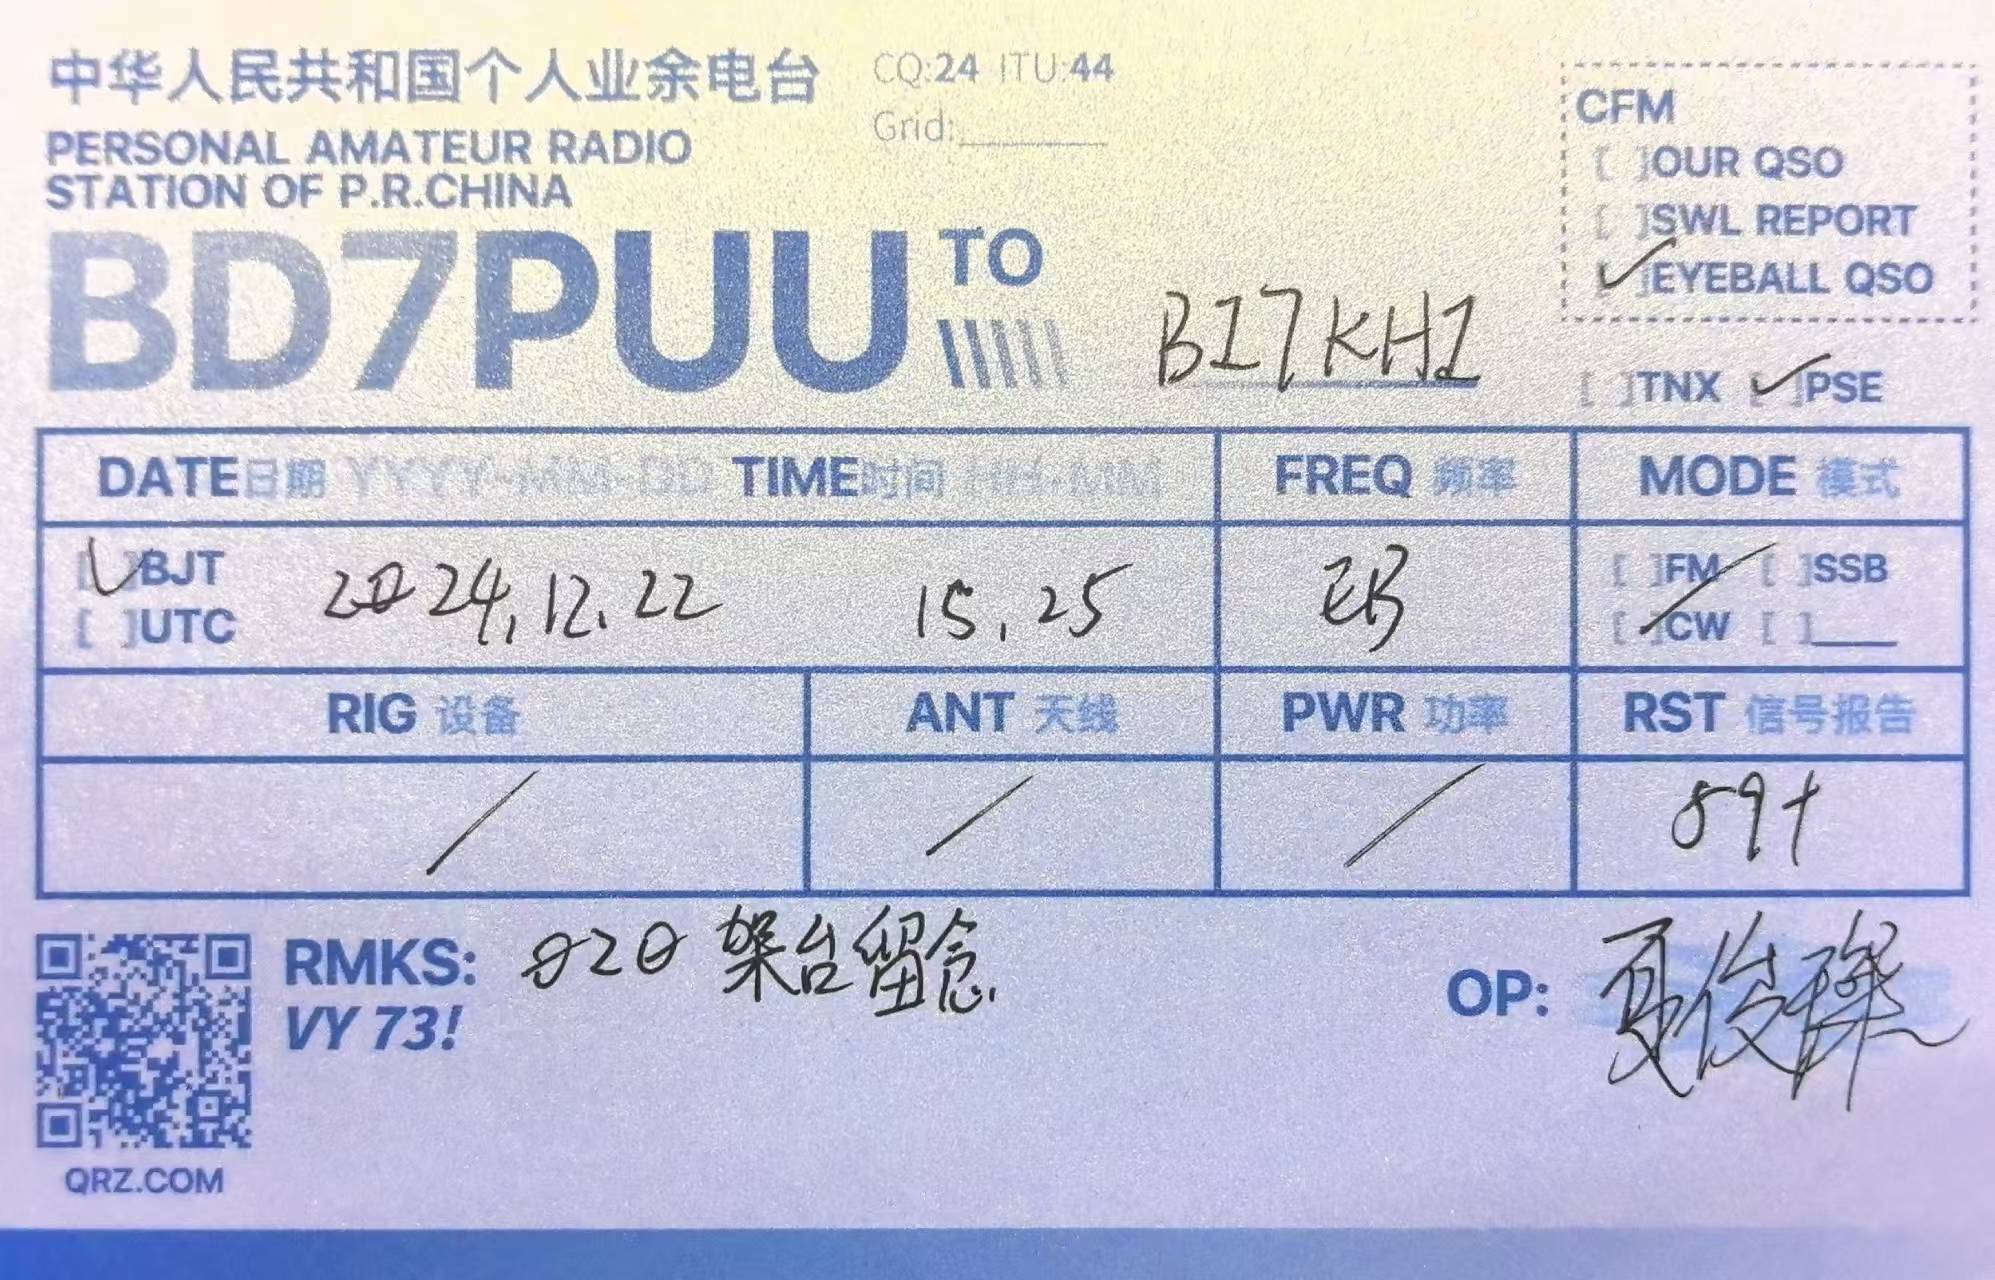 中华人民共和国个人业余电台
CQ:24 ITU:44
Grid:
PERSONAL AMATEUR RADIO
STATION OF P.R.CHINA
BD7PUU TO
BI7KHI
CFM
[ ]OUR QSO
[ ]SWL REPORT
[✓]EYEBALL QSO
[ ]TNX [✓]PSE
DATE日期 YYYY-MM-DD TIME时间 HH-MM FREQ 频率 MODE 模式
[✓]BJT
[ ]UTC
2024.12.22 15.25 EB
[ ]FM [ ]SSB
[ ]CW [ ]
RIG 设备 ANT 天线 PWR 功率 RST 信号报告
/ / / 59+
RMKS: 020 架台留念.
VY 73!
OP:
QRZ.COM